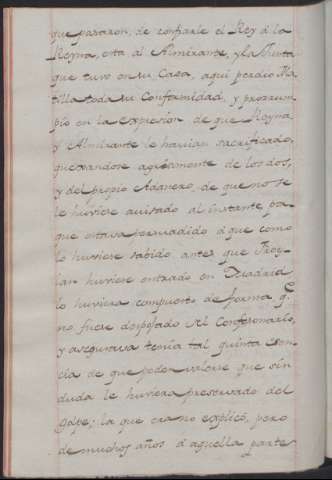 que pasaron, de confiarle el Rey á la
Reyna, esta al Almirante, y la Junta
que tuvo en su Casa, aqui perdio Ma
tilla toda su Conformidad, y prorrum
pio en la expresion de que Reyna,
y Almirante le havian sacrificado,
quexandose agriamente de los dos,
y del propio Adanero, de que no se
le huviere avisado al instante, por
que estava persuadido á que como
lo huviere sabido antes que Froy
lan huviere entrado en Madrid
lo huviera compuesto de forma q.e
no fuere despojado del Confesonario,
y asegurava tenia tal quinta esen
cia de que poder valerse que sin
duda le huviera preservado del
golpe; la que era no explicó, pero
de muchos años á aquella parte